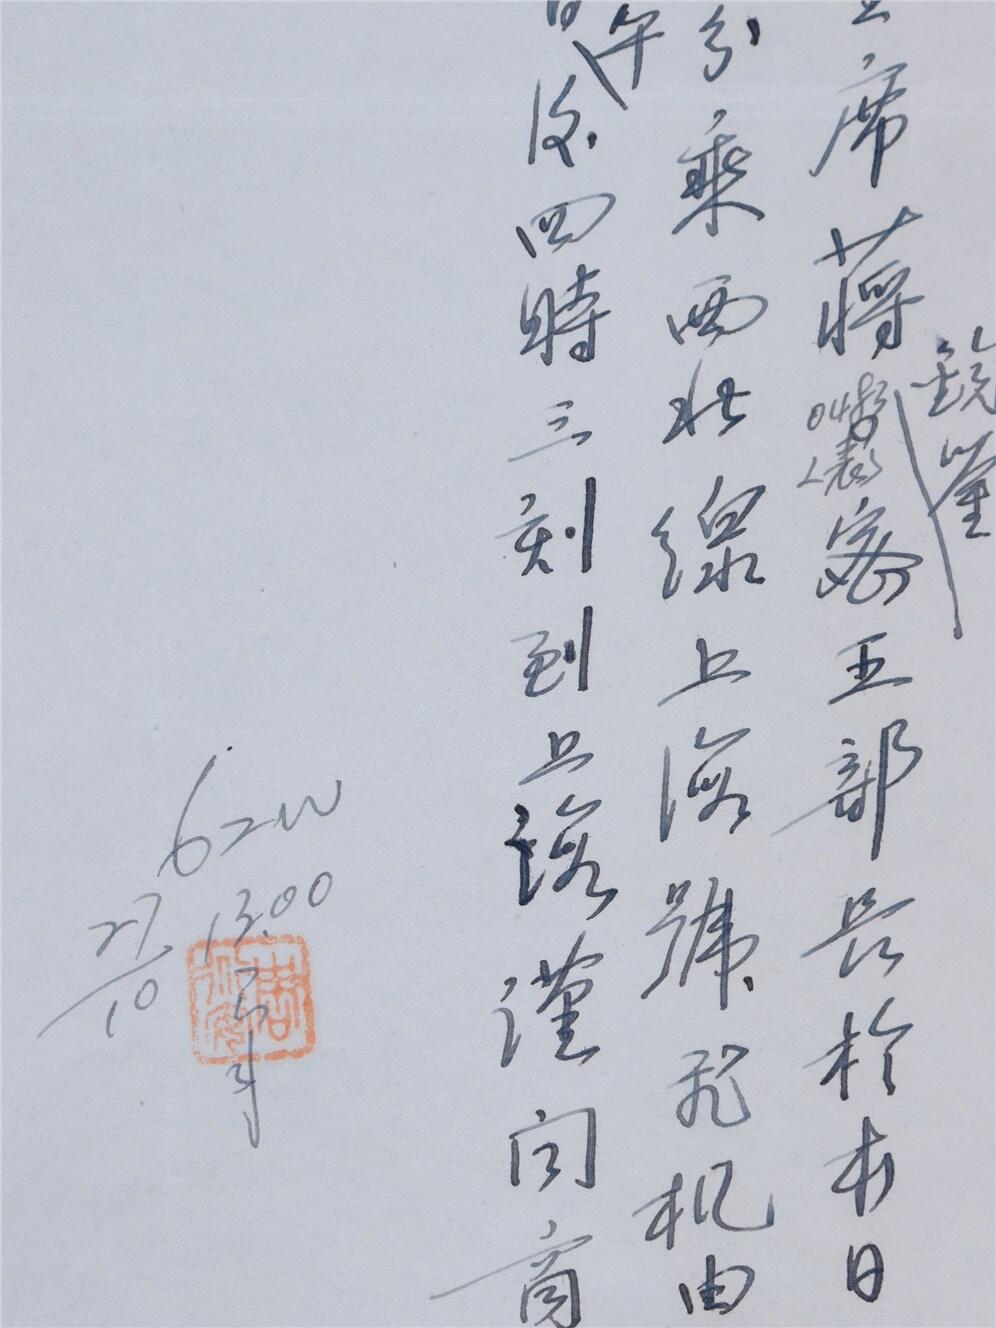 主席蔣密王部長於本日
鏡
分乘西北線上海號飛机由
午
後四時三刻到上海謹聞商
27/10 13.00